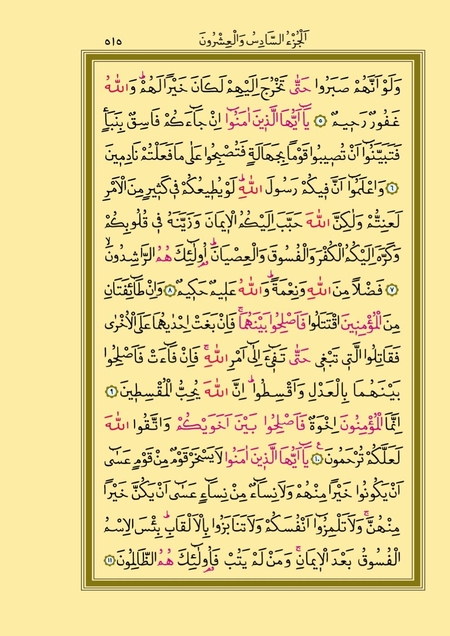 اَلْجُزْءُ السَّادِسُ وَالْعِشْرُونَ ٥١٥
وَلَوْ اَنَّهُمْ صَبَرُوا حَتّٰى تَخْرُجَ اِلَيْهِمْ لَكَانَ خَيْرًا لَهُمْۜ وَاللّٰهُ
غَفُورٌ رَحٖيمٌ ٥ يَٓا اَيُّهَا الَّذٖينَ اٰمَنُٓوا اِنْ جَٓاءَكُمْ فَاسِقٌ بِنَبَأٍ
فَتَبَيَّنُٓوا اَنْ تُصٖيبُوا قَوْمًا بِجَهَالَةٍ فَتُصْبِحُوا عَلٰى مَا فَعَلْتُمْ نَادِمٖينَ
٦ وَاعْلَمُٓوا اَنَّ فٖيكُمْ رَسُولَ اللّٰهِۜ لَوْ يُطٖيعُكُمْ فٖي كَثٖيرٍ مِنَ الْاَمْرِ
لَعَنِتُّمْ وَلٰكِنَّ اللّٰهَ حَبَّبَ اِلَيْكُمُ الْاٖيمَانَ وَزَيَّنَهُ فٖي قُلُوبِكُمْ
وَكَرَّهَ اِلَيْكُمُ الْكُفْرَ وَالْفُسُوقَ وَالْعِصْيَانَۜ اُو۬لٰٓئِكَ هُمُ الرَّاشِدُونَۙ
٧ فَضْلًا مِنَ اللّٰهِ وَنِعْمَةًۜ وَاللّٰهُ عَلٖيمٌ حَكٖيمٌ ٨ وَاِنْ طَٓائِفَتَانِ
مِنَ الْمُؤْمِنٖينَ اقْتَتَلُوا فَاَصْلِحُوا بَيْنَهُمَاۚ فَاِنْ بَغَتْ اِحْدٰيهُمَا عَلَى الْاُخْرٰى
فَقَاتِلُوا الَّتٖي تَبْغٖي حَتّٰى تَفٖٓيءَ اِلٰٓى اَمْرِ اللّٰهِۚ فَاِنْ فَٓاءَتْ فَاَصْلِحُوا
بَيْنَهُمَا بِالْعَدْلِ وَاَقْسِطُواۜ اِنَّ اللّٰهَ يُحِبُّ الْمُقْسِطٖينَ ٩
اِنَّمَا الْمُؤْمِنُونَ اِخْوَةٌ فَاَصْلِحُوا بَيْنَ اَخَوَيْكُمْ وَاتَّقُوا اللّٰهَ
لَعَلَّكُمْ تُرْحَمُونَ۟ ١٠ يَٓا اَيُّهَا الَّذٖينَ اٰمَنُوا لَا يَسْخَرْ قَوْمٌ مِنْ قَوْمٍ عَسٰٓى
اَنْ يَكُونُوا خَيْرًا مِنْهُمْ وَلَا نِسَٓاءٌ مِنْ نِسَٓاءٍ عَسٰٓى اَنْ يَكُنَّ خَيْرًا
مِنْهُنَّۚ وَلَا تَلْمِزُٓوا اَنْفُسَكُمْ وَلَا تَنَابَزُوا بِالْاَلْقَابِۜ بِئْسَ الِاسْمُ
الْفُسُوقُ بَعْدَ الْاٖيمَانِۚ وَمَنْ لَمْ يَتُبْ فَاُو۬لٰٓئِكَ هُمُ الظَّالِمُونَ ١١